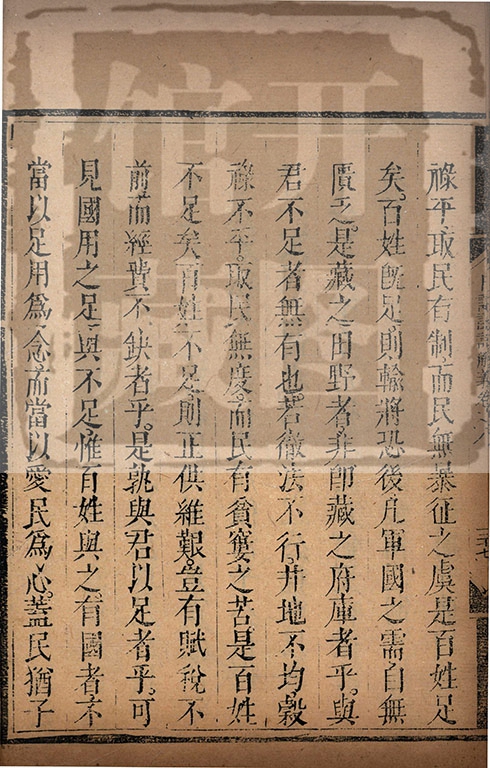 祿平。取民有制而民無暴征之虞。是百姓足
矣。百姓既足。則輸將恐後。凡軍國之需。自無
匱之。是藏之田野者。非即藏之府庫者乎。與
君不足者無有也。若徹法不行。井地不均。穀
祿不平。取民無度。而民有貧窶之苦。是百姓
不足矣。百姓不足。則正供維艱。豈有賦稅不
前而經費不缺者乎。是孰與君以足者乎。可
見國用之足與不足。惟百姓與之。有國者不
當以足用為念。而當以愛民為心。蓋民猶子
開圖
館藏